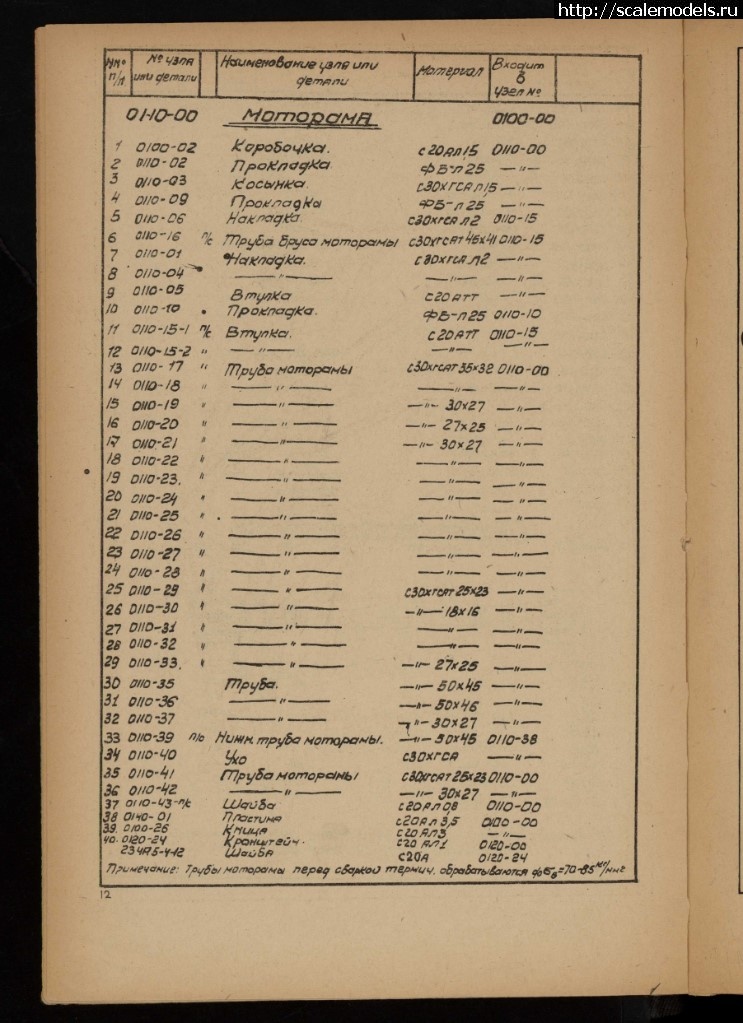 http://scalemodels.ru
№№ п/п № узла или детали Наименование узла или детали Материал Входит в узел №
0110-00 Моторама 0100-00
1 0100-02 Коробочка. с20Ал15 0110-00
2 0110-02 Прокладка ФБ-л25 —〃—
3 0110-03 Косынка. с30хГСАл15 —〃—
4 0110-09 Прокладка ФБ-л25 —〃—
5 0110-06 Накладка. с30хГСАл2 0110-15
6 0110-16 п/с Труба бруса моторамы с30хГСАТ45х41 0110-15
7 0110-01 Накладка. с30хГСАл2 —〃—
8 0110-04 —〃— —〃— —〃—
9 0110-05 Втулка с20АТТ —〃—
10 0110-10 Прокладка. ФБ-л25 0110-10
11 0110-15-1 п/с Втулка. с20АТТ 0110-15
12 0110-15-2 〃 —〃— —〃— —〃—
13 0110-17 〃 Труба моторамы с30хГСАТ35х32 0110-00
14 0110-18 〃 —〃— —〃— —〃—
15 0110-19 〃 —〃— —〃— 30х27 —〃—
16 0110-20 〃 —〃— —〃— 27х25 —〃—
17 0110-21 〃 —〃— —〃— 30х27 —〃—
18 0110-22 〃 —〃— —〃— —〃—
19 0110-23. 〃 —〃— —〃— —〃—
20 0110-24 〃 —〃— —〃— —〃—
21 0110-25 〃 —〃— —〃— —〃—
22 0110-26 〃 —〃— —〃— —〃—
23 0110-27 〃 —〃— —〃— —〃—
24 0110-28 〃 —〃— —〃— —〃—
25 0110-29 〃 —〃— с30хГСАТ25х23 —〃—
26 0110-30 〃 —〃— —〃— 18х16 —〃—
27 0110-31 〃 —〃— —〃— —〃—
28 0110-32 〃 —〃— —〃— —〃—
29 0110-33. 〃 —〃— —〃— 27х25 —〃—
30 0110-35 Труба. —〃— 50х45 —〃—
31 0110-36 —〃— —〃— 50х46 —〃—
32 0110-37 —〃— —〃— 30х27 —〃—
33 0110-39 п/с Нижн. труба моторамы. —〃— 50х45 0110-38
34 0110-40 Ухо с30хГСА —〃—
35 0110-41 Труба моторамы с30хГСАТ25х23 0110-00
36 0110-42 —〃— —〃— 30х27 —〃—
37 0110-43-п/с Шайба с20Ал08 0110-00
38 0140-01 Пластина с20Ал3,5 0100-00
39. 0100-26 Кница с20Ал3 —〃—
40. 0120-24 Кронштейн. с20Ал1 0120-00
234А5-4-12 Шайба с20А 0120-24
Примечание: Трубы моторамы перед сваркой термич. обрабатываются до σв=70-85 кг/мм²
12